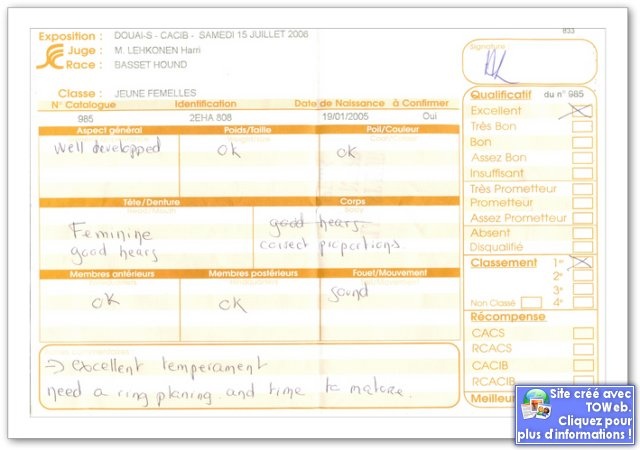 833
Exposition : DOUAI-S - CACIB - SAMEDI 15 JUILLET 2006
Juge : M. LEHKONEN Harri
Race : BASSET HOUND
Signature
Classe : JEUNE FEMELLES
N° Catalogue Identification Date de Naissance à Confirmer
985 2EHA 808 19/01/2005 Oui
Aspect général Poids/Taille Poil/Couleur
Well developped OK OK
Tête/Denture Corps
Feminine good hears
good hears correct proportions.
Membres antérieurs Membres postérieurs Fouet/Mouvement
OK OK sound
→ excellent temperament
need a ring planing and time to mature.
Qualificatif du n° 985
Excellent
Très Bon
Bon
Assez Bon
Insuffisant
Très Prometteur
Prometteur
Assez Prometteur
Absent
Disqualifié
Classement 1er
2e
3e
Non Classé 4e
Récompense
CACS
RCACS
CACIB
RCACIB
Meilleur
Site créé avec
TOWeb.
Cliquez pour
plus d'informations !